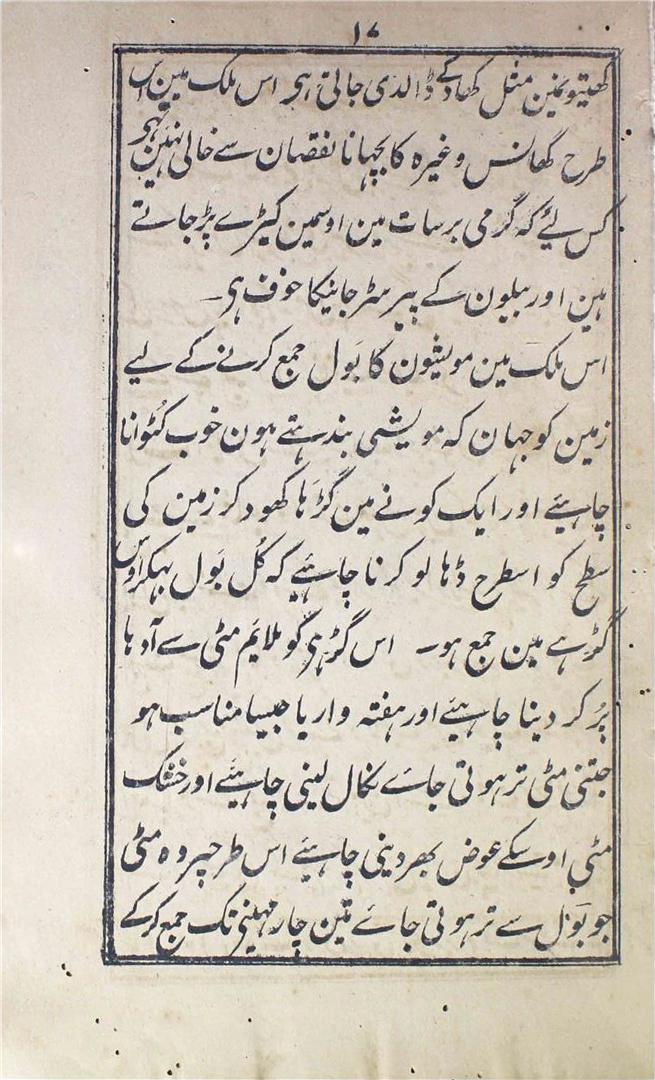 ۱۷
کھیتونمین مثل کھاد کے ڈالدی جاتی ہی اس ملک مین اس
طرح گھانس وغیرہ کا بچھانا نقصان سے خالی نہین ہی
کس لئے کہ گرمی برسات مین اوسمین کیڑے پڑ جاتے
ہین اور بیلون کے پیر سڑ جانیکا خوف ہی۔
اس ملک مین مویشیون کا بَول جمع کرنے کے لیے
زمین کو جہان کہ مویشی بندہتے ہون خوب کُٹوانا
چاہیئے اور ایک کونے مین گڑہا کھود کر زمین کی
سطح کو اسطرح ڈہالو کرنا چاہئے کہ کُل بَول بہکر اوس
گڑہے مین جمع ہو۔ اس گڑہی کو ملایم مٹی سے آدہا
پُر کر دینا چاہیئے اور ہفتہ وار یا جیسا مناسب ہو
جتنی مٹی تر ہوتی جاے نکال لینی چاہیئے اور خشک
مٹی اوسکے عوض بھر دینی چاہیئے اس طرحپر وہ مٹی
جو بَول سے تر ہوتی جاے تین چار مہینے تک جمع کرکے